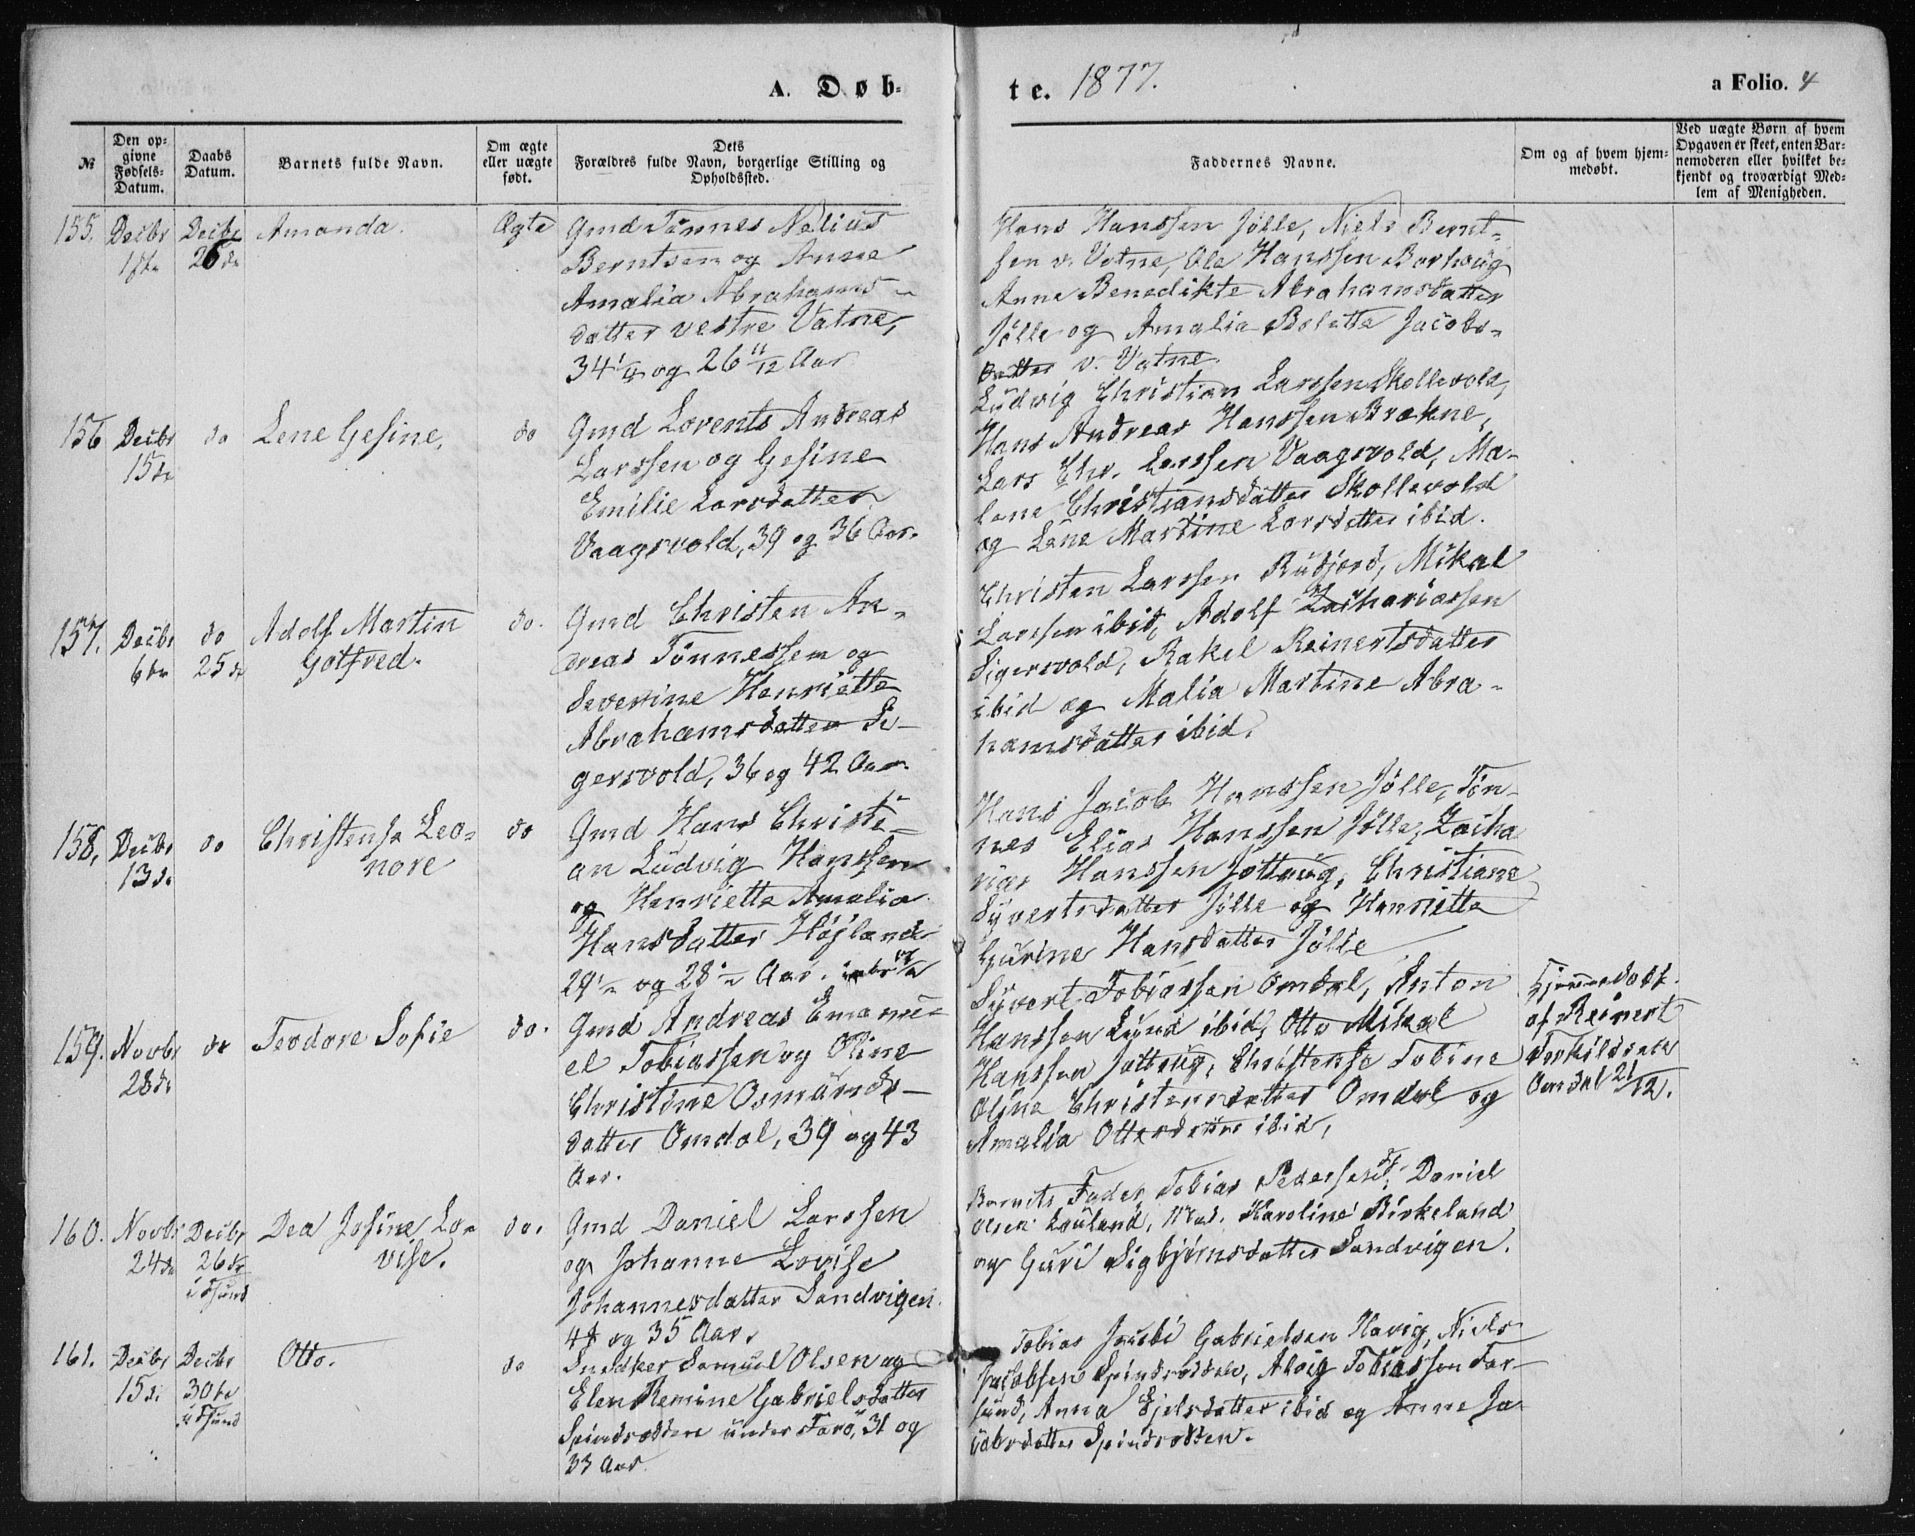 A. Døb-
te. 1877.
a Folio. 4
№
Den op-
givne
Fødsels-
Datum.
Daabs
Datum.
Barnets fulde Navn.
Om ægte
eller uægte
født.
Dets
Forældres fulde Navn, borgerlige Stilling og
Opholdssted.
Faddernes Navne.
Om og af hvem hjem-
medøbt.
Ved uægte Børn af hvem
Opgaven er skeet, enten Bar-
nemoderen eller hvilket be-
kjendt og troværdigt Med-
lem af Menigheden.
155. Decbr 1ste
Decbr 26de
Amanda.
Ægte
Gmd Tönnes Nelius
Berntsen og Anne
Amalia Abrahams-
datter vestre Vatne,
34 1/4 og 26 11/12 Aar
Hans Hanssen Jölle, Niels Bernt-
sen v. Vatne, Ole Hanssen Borhaug
Anne Benedikte Abrahamsdatter
Jölle og Amalia Bolette Jacobs-
datter v. Vatne.
156 Decbr 15de
do
Lene Gesine,
do
Gmd Lorents Andreas
Larssen og Gesine
Emilie Larsdatter
Vaagsvold, 39 og 36 Aar.
Ludvig Christian Larssen Skollevold,
Hans Andreas Hanssen Brækne,
Lars Chr. Larssen Vaagsvold, Ma-
lene Christiansdatter Skollevold
og Lene Martine Larsdatter ibid.
157. Decbr 6te
do 25de
Adolf Martin
Gotfred.
do.
Gmd Christen An-
dreas Tönnessen og
Severine Henriette
Abrahamsdatter Si-
gersvold, 36 og 42 Aar
Christen Larssen Rudjord, Mikal
Larssen ibid, Adolf Zachariassen
Sigersvold, Rakel Reinertsdatter
ibid og Malia Martine Abra-
hamsdatter ibid.
158. Decbr 13de
do
Christense Leo-
nore
do
Gmd Hans Christi-
an Ludvig Hanssen
og Henriette Amalia
Hansdatter Højland
29 1/2 og 28 1/2 Aar.
Hans Jacob Hanssen Jölle, Tön-
nes Elias Hanssen Jölle, Zacha
rias Hanssen Jottaug, Christiane
Syvertsdatter Jölle og Henriette
Gurine Hansdatter Jölle
159. Novbr 28de
do
Teodore Sofie
do.
Gmd Andreas Emanu-
el Tobiassen og Oline
Christine Osmunds-
datter Omdal, 39 og 43
Aar.
Syvert Tobiassen Omdal, Anton
Hanssen Lund ibid, Otto Mikal
Hanssen Jottaug, Christense Tobine
Oline Christensdatter Omdal og
Amalia Ottersdatter ibid,
Hjemmedöbt
af Reinert
Torkildsen
Omdal 21/12.
160. Novbr 24de
Decbr 26de
i Fsund
Dea Josine Lo-
vise.
do.
Gmd Daniel Larssen
og Johanne Lovise
Johannesdatter Sandvigen
og 35 Aar.
Barnets Fader, Tobias Pedersen, Daniel
Olsen Lauland, Mad. Karoline Birkeland
og Guri Sigbjörnsdatter Sandvigen.
161. Decbr 15de
Decbr 30te
i Fsund
Otto.
do
Snedker Samuel Olsen og
Elen Remine Gabrielsdatter
Spindsodden under Farö, 31 og
33 Aar
Tobias Jacobi Gabrielsen Havig, Niels
Jacobsen Spindsodden, Alvig Tobiassen Far-
sund, Anna Ejelsdatter ibid og Anne Ja-
cobsdatter Spindsodden.